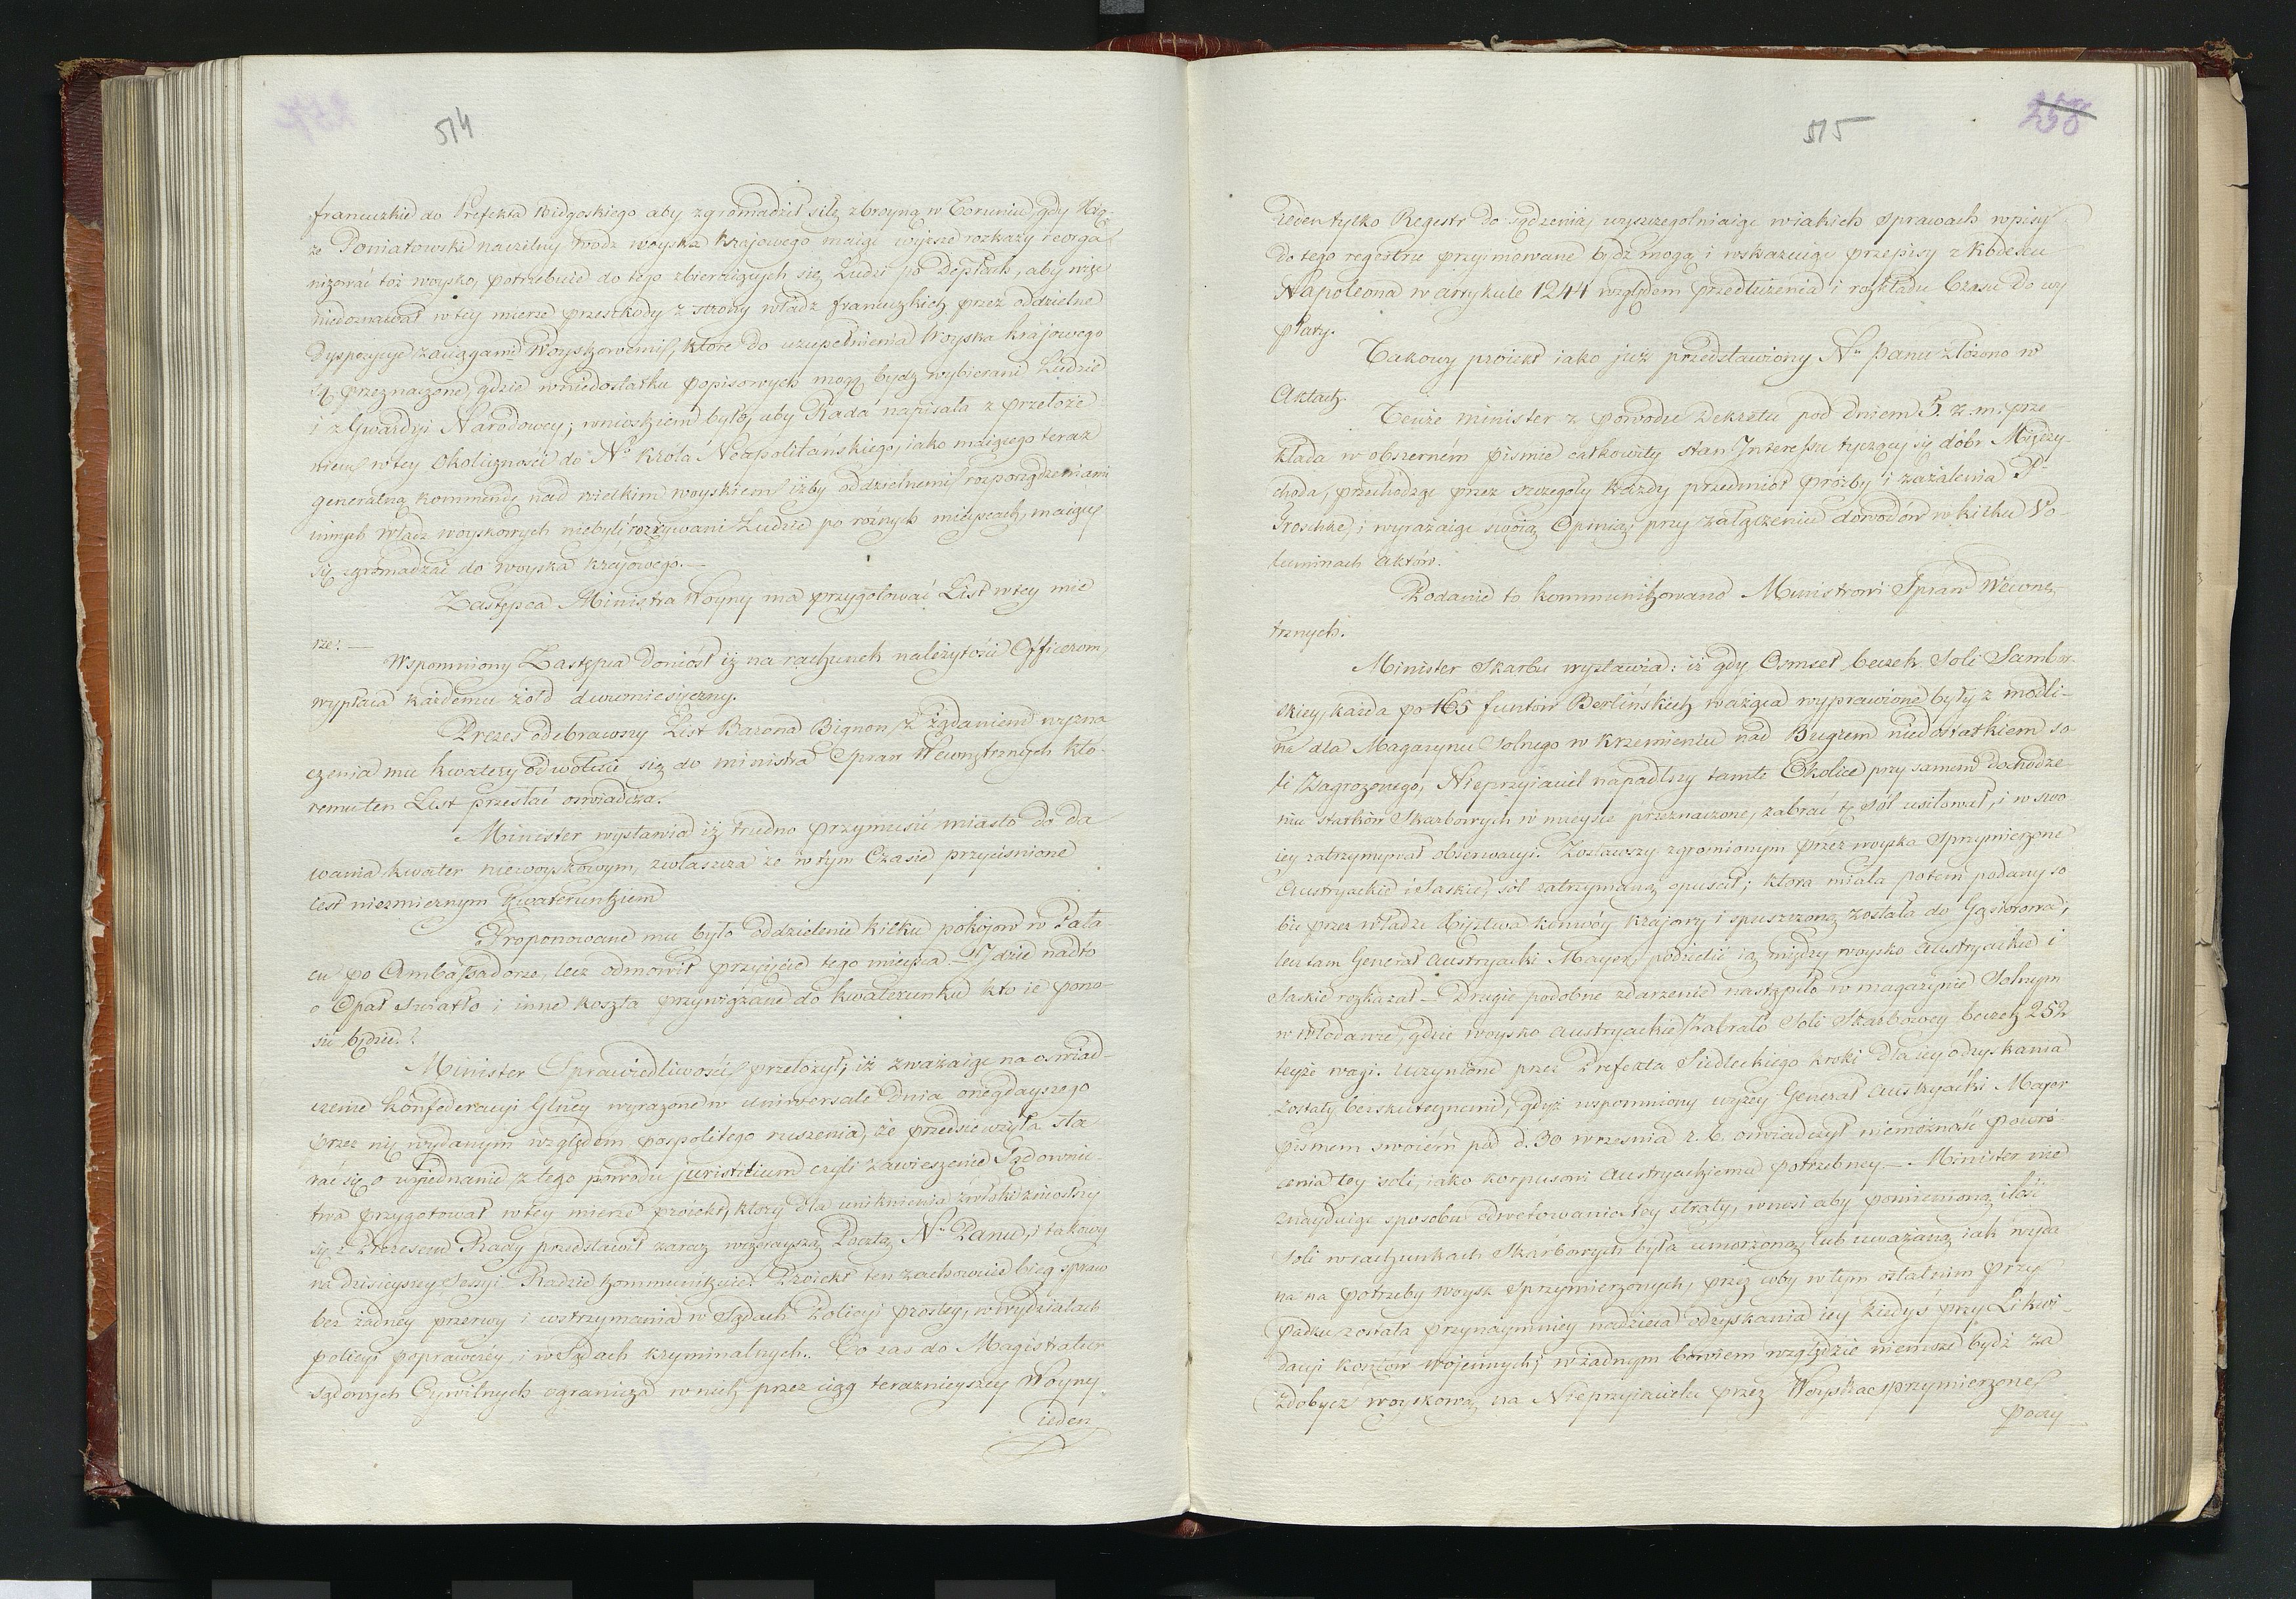 514
francuzkie do Prefekta Bidgoskiego aby zgromadził siłę zbroyną w Toruniu, gdy Xią-
że Poniatowski naczelny wódz woyska krajowego maiąc wyższe rozkazy reorga
nizować toż woysko, potrzebuie do tego zbieraiących się Ludzi po Deptach, aby więc
niedoznawał w tey mierze przeszkody z strony władz francuzkich przez oddzielne
dyspozycye zaciągami Woyskowemi, które do uzupełnienia Woyska krajowego
są przeznaczone, gdzie w niedostatku popisowych mogą bydź wybierani Ludzie
i z Gwardyi Narodowey; wnioskiem było, aby Rada napisała z przełoże
niem w tey okoliczności do Nº Króla Neapolitańskiego, iako maiącego teraz
generalną kommendę nad wielkim woyskiem iżby oddzielnemi rozporządzeniami
innych Władz woyskowych niebyli rozrywani Ludzie po różnych mieyscach, maiący
się zgromadzać do woyska krajowego. —
Zastępca Ministra Woyny ma przygotować List w tey mie
rze: —
Wspomniony Zastępca doniósł iż na rachunek należytości Officerom,
wypłaca każdemu żołd dwumiesięczny.
Prezes odebrawszy List Barona Bignon z żądaniem wyzna
czenia mu kwatery odwołuie się do ministra Spraw Wewnętrznych kto-
remu ten List przesłać oświadcza.
Minister wystawia iż trudno przymusić miasto do da
wania kwater niewoyskowym, zwłaszcza że w tym Czasie przyciśnione
iest niezmiernym kwaterunkiem
Proponowane mu było oddzielenie kilku pokojów w Pała
cu po Ambassadorze, lecz odmówił przyięcie tego mieysca. — Idzie nadto
o Opał Światło i inne koszta przywiązane do kwaterunku kto ie pono-
sić będzie?
Minister Sprawiedliwości przełożył, iż zważaiąc na oświad-
czenie Konfederacyi Głney wyrażone w uniwersale Dnia onegdayszego
przez nię wydanym względem pospolitego ruszenia, że przedsięwzięła sta
rać się o wyjednanie z tego powodu juristitium czyli zawieszenie Sądownic-
twa przygotował w tey mierze proiekt, ktory dla uniknienia zwłoki zniosłszy
się z Prezesem Rady przedstawił zaraz wczorayszą Pocztą Nº Panu, i takowy
na dzisieyszey Sessyi Radzie kommunikuie. Proiekt ten zachowuie bieg spraw
bez żadney przerwy i wstrzymania w Sądach Policyi prostey, w wydziałach
policyi poprawczey, i w Sądach kryminalnych. Co zas do Magistratur
sądowych Cywilnych ogranicza w nich przez ciąg teraznieyszey Woyny
ieden
515
258
ieden tylko Regestr do sądzenia, wyszczególniaiąc w iakich sprawach wpisy
do tego regestru przyimowane bydź mogą i wskazuiąc przepisy z Kodexu
Napoleona w artykule 1244 względem przedłużenia i rozkładu Czasu do wy
płaty.
Takowy proiekt iako już przedstawiony Nº Panu złożono w
Aktach.
Tenże minister z powodu Dekretu pod dniem 5. z. m. prze
kłada w obszerném piśmie całkowity stan Interessu tyczący się dóbr Między-
choda, przechodząc przez szczegóły każdy przedmiot prozby i zażalenia Pº
Troschke, i wyrażaiąc swoią Opinią; przy załączeniu dowodów w kilku Vo-
luminach aktów.
Podanie to kommunikowano Ministrowi Spraw Wewnę
trznych.
Minister Skarbu wystawia: iż gdy Osmset beczek Soli Sambor-
skiey, każda po 165 funtów Berlińskich ważąca wyprawione były z Modli-
na dla Magazynu Solnego w Krzemieniu nad Bugiem niedostatkiem so
li Zagrożonego, Nieprzyiaciel napadłszy tamte Okolice przy samem dochodze
niu statków Skarbowych w mieysce przeznaczone, zabrać tę Sól usiłował, i w swo
iey zatrzymywał obserwacyi. Zostawszy zgromionym przez woyska Sprzymierzone
Austryackie i Saskie, sól zatrzymaną opuscił; która miała potem podany so
bie przez władze Xięztwa konwóy krajowy i spuszczoną została do Gąsiorowa;
lecz tam Generał Austryacki Mayer podzielić ią między woysko Austryackie i
Saskie rozkazał. — Drugie podobne zdarzenie nastąpiło w magazynie Solnym
w Włodawie, gdzie woysko Austryackie zabrało Soli Skarbowey beczek 252
teyże wagi. Uczynione przez Prefekta Siedleckiego kroki dla iey odzyskania
zostały bezskutecznemi, gdyż wspomniony wyżey Generał Austryacki Major
pismem swoiém pod d. 30 wrzesnia r. b. oświadczył niemożność powró-
cenia tey soli, iako korpusowi Austryackiemu potrzebney. — Minister nie
znayduiąc sposobu odwetowania tey straty, wnosi aby pomienioną ilość
Soli w rachunkach Skarbowych była umorzoną lub uważaną iak wyda
na na potrzeby woysk Sprzymierzonych, przez coby w tym ostatnim przy
padku została przynaymniey nadzieia odzyskania iey kiedyś przy Likwi-
dacyi kosztów woiennych; w żadnym bowiem względzie niemoże bydź za
zdobycz woyskową na Nieprzyiacielu przez Woyska sprzymierzone
poczy